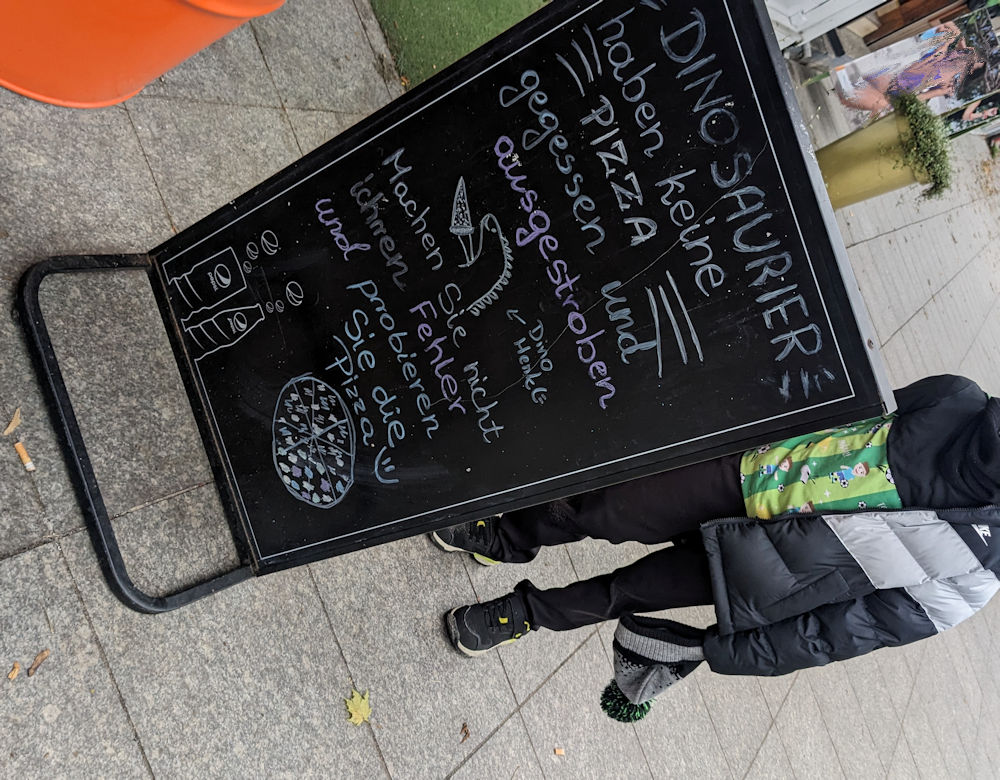 DINOSAURIER
haben keine
PIZZA
gegessen und
ausgestroben
Dino
Henkle
Machen Sie nicht
ichren Fehler
und probieren
Sie die
Pizza